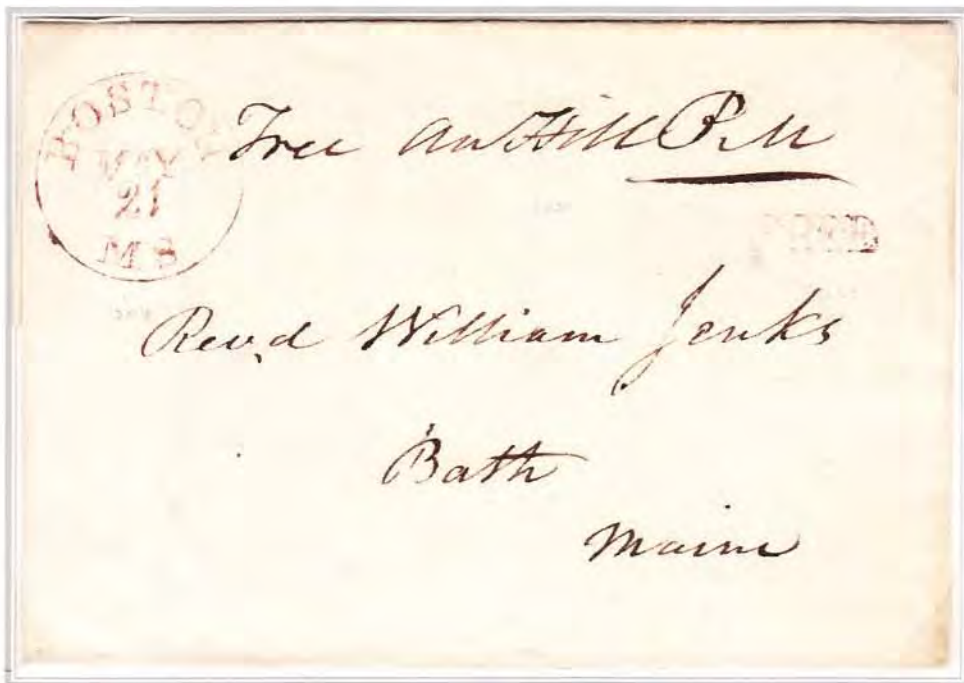 BOSTON
MAY
21
MS
Free Aw Hill P.M
FREE
Revd William Jenks
Bath
Maine